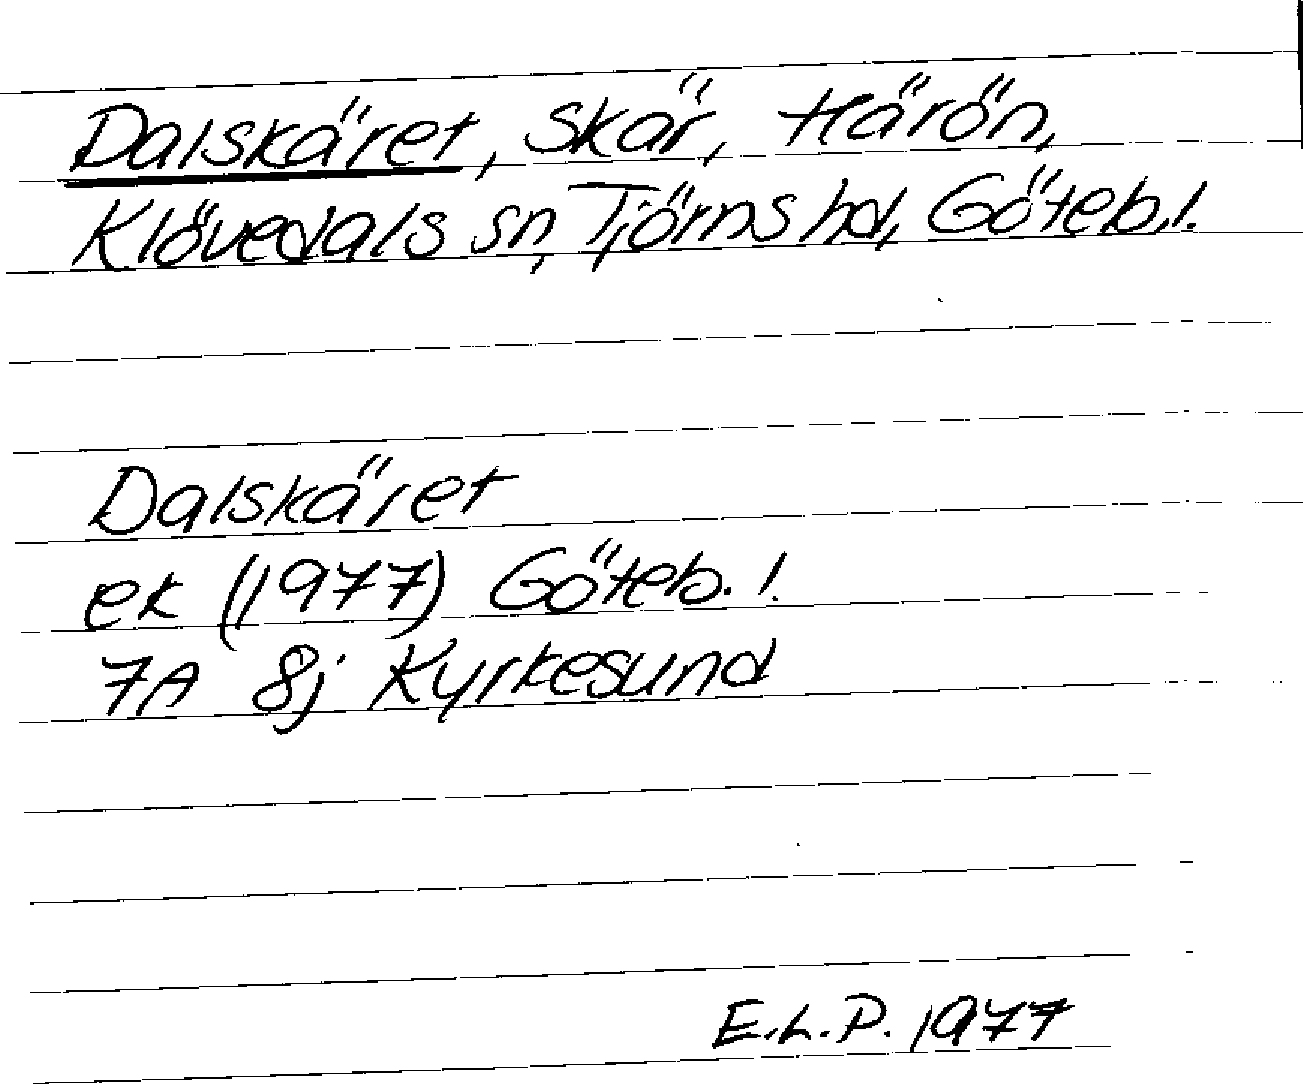 Dalskäret, Skär, Härön,
Klövedals sn, Tjörns hd, Göteb. l.
Dalskäret
ek (1977) Göteb. l.
7A 8j Kyrkesund
E.L.P. 1977